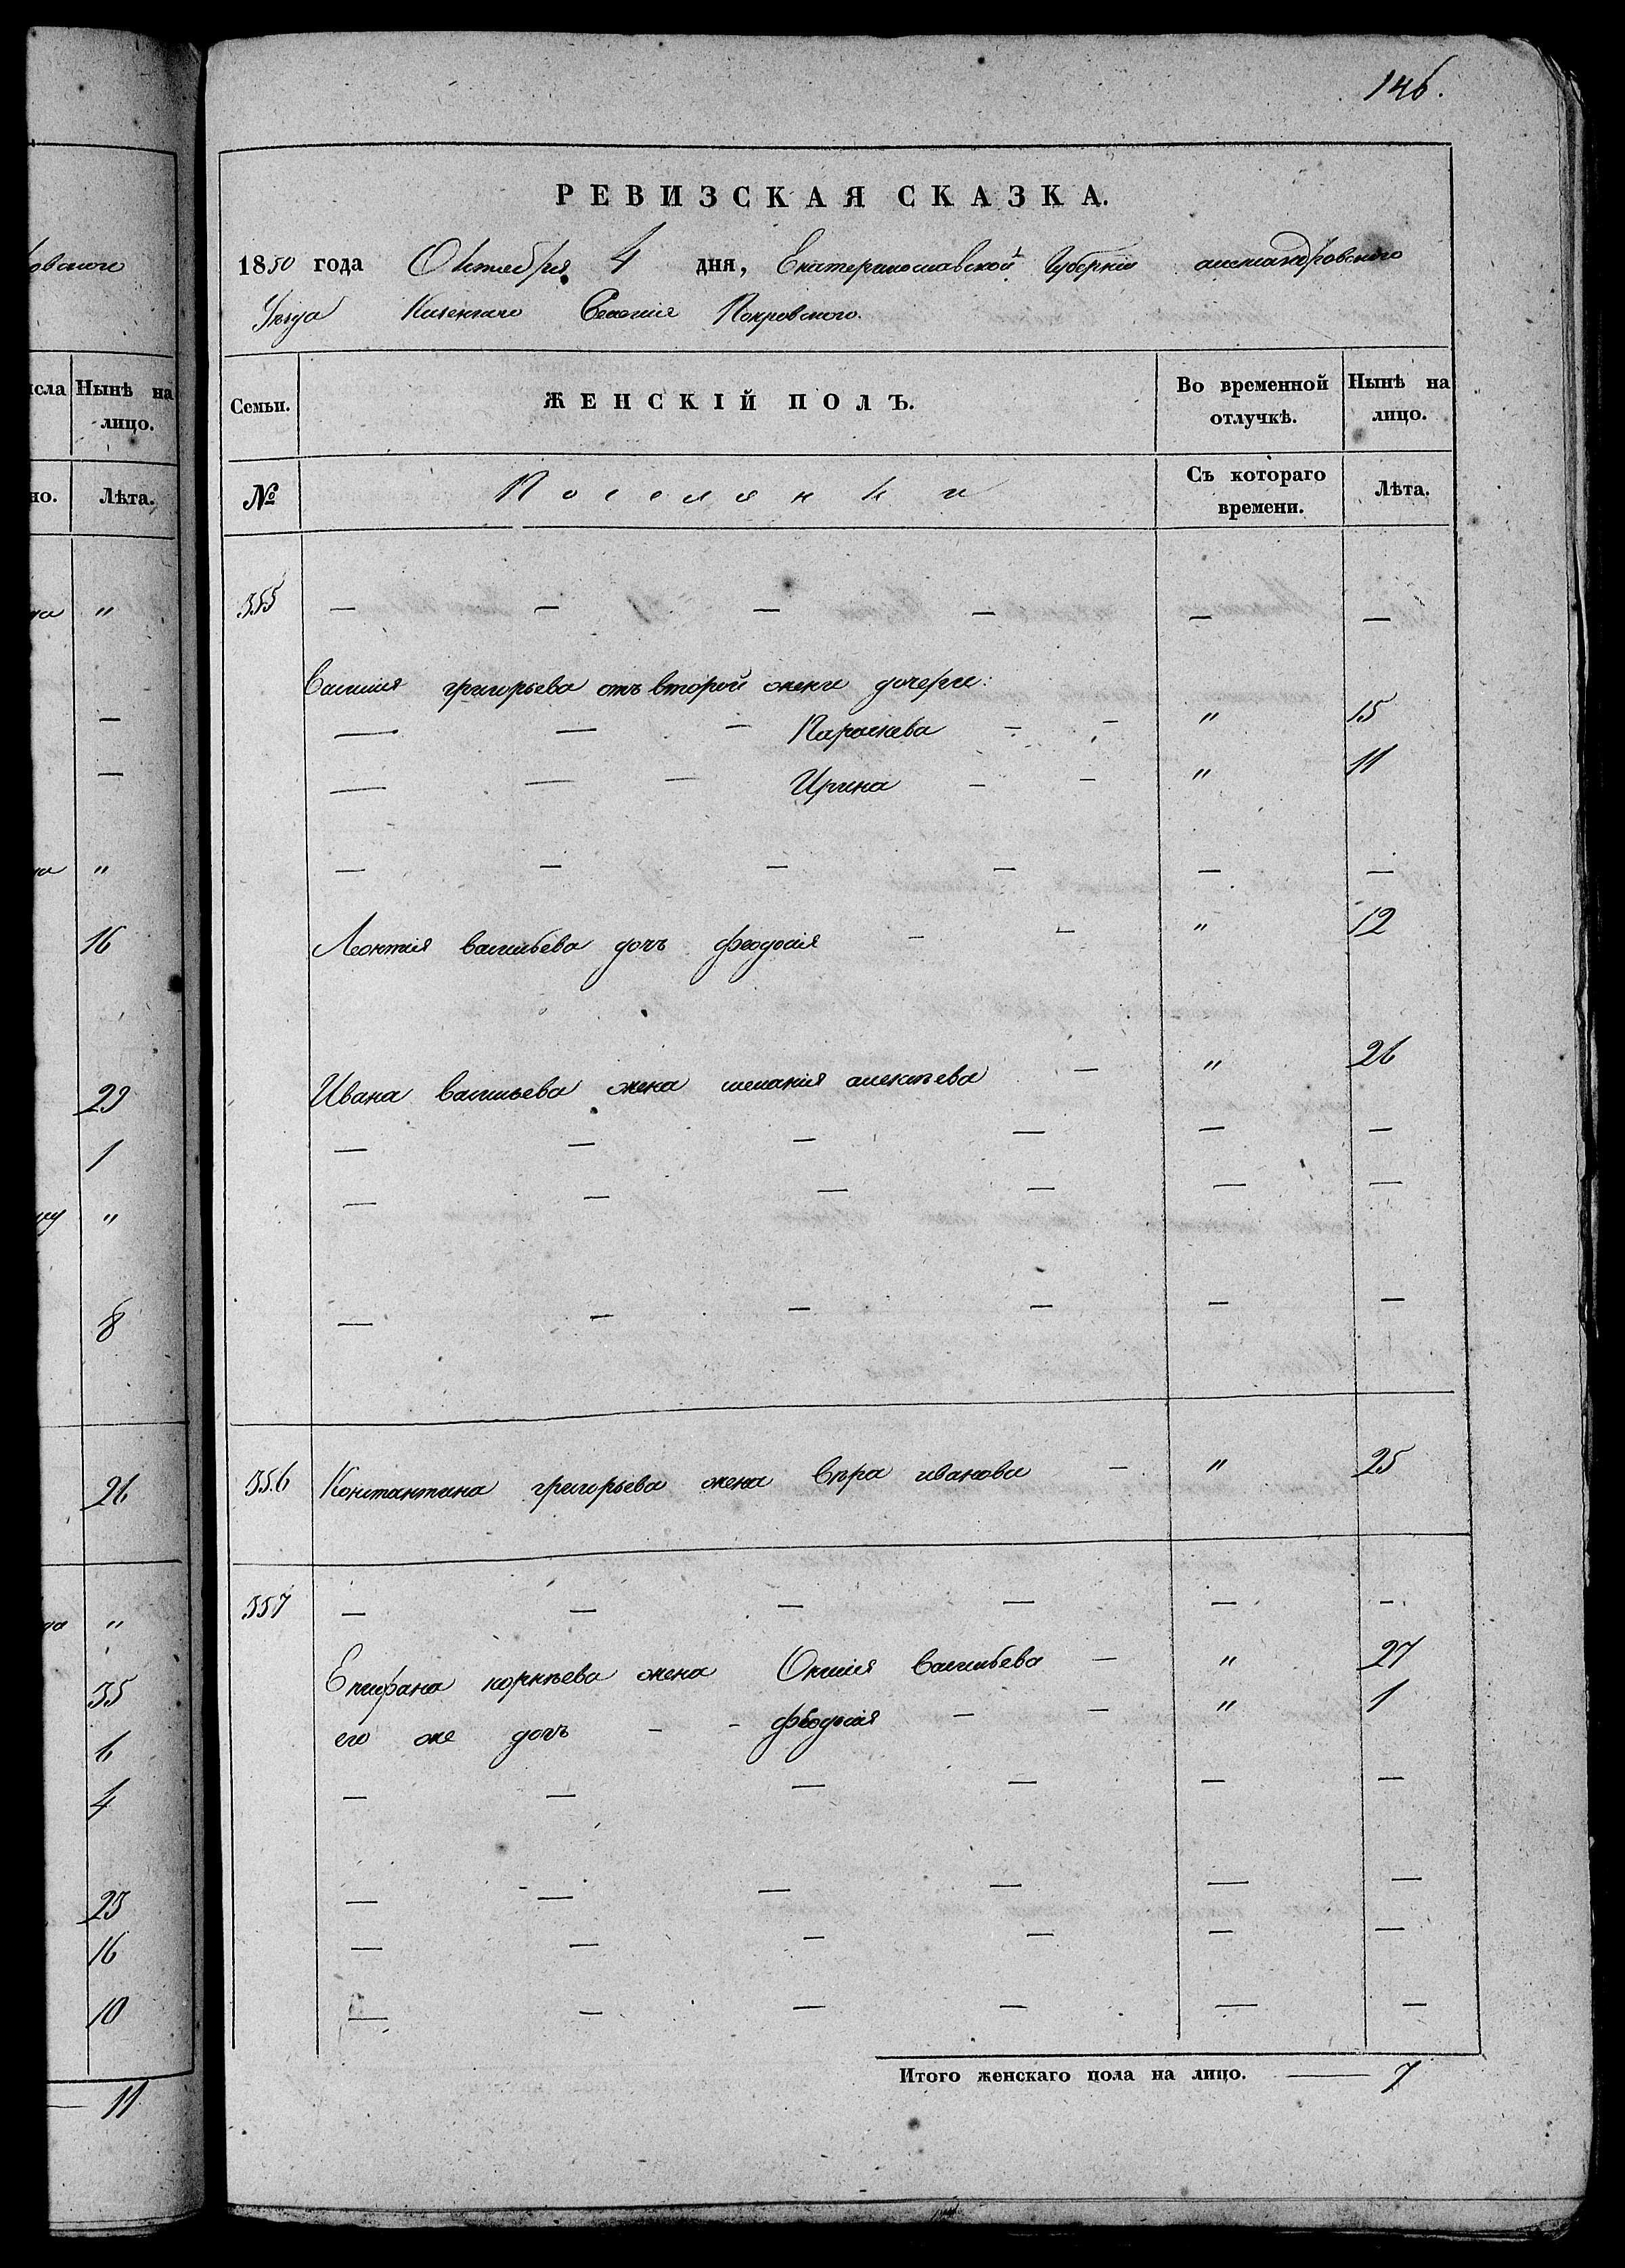 146.
РЕВИЗСКАЯ СКАЗКА.
1850 года Октября 4 дня, Екатеринославской Губернiи александровского
Уѣзда Казеннаго Селенiя Покровского.
Семьи. ЖЕНСКIЙ ПОЛЪ. Во временной отлучкѣ. Нынѣ на лицо.
№ Поселянки Съ котораго времени. Лѣта.
355 — — — — — —
Василiя григорьева отъ второй жены дочери:
— — — Параскева — — " 15
— — — Ирина — — " 11
— — — — — —
Леонтiя васильева дочь феодосiя — — " 12
Ивана васильева жена меланiя алексѣева — " 26
— — — — — —
— — — — — —
— — — — — —
356 Константина григорьева жена вѣра иванова — " 25
357 — — — — — —
Епифана корнѣева жена васильева — " 27
его же дочь — — феодосiя — — " 1
— — — — — —
— — — — — —
— — — — — —
— — — — — —
Итого женскаго пола на лицо. — 7
овского
исла Нынѣ на лицо.
но. Лѣта.
да "
—
—
на "
16
29
1
ду "
8
26
да "
35
6
4
23
16
10
— 11